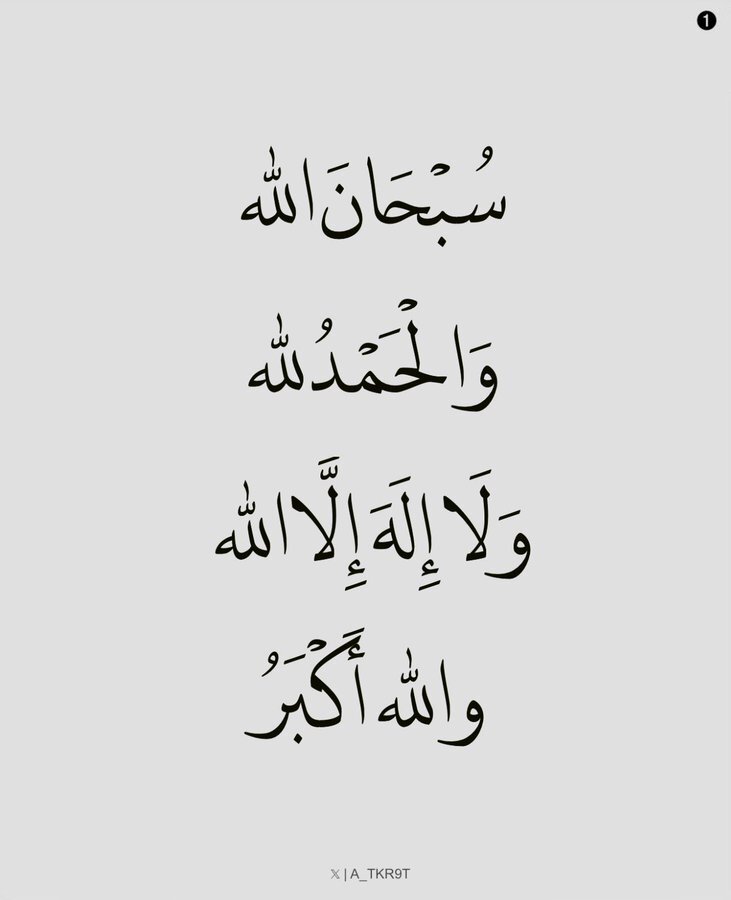 ❶
سُبْحَانَ الله
وَالْحَمْدُ لله
وَلَا إِلَهَ إِلَّا الله
والله أَكْبَرُ
𝕏 | A_TKR9T